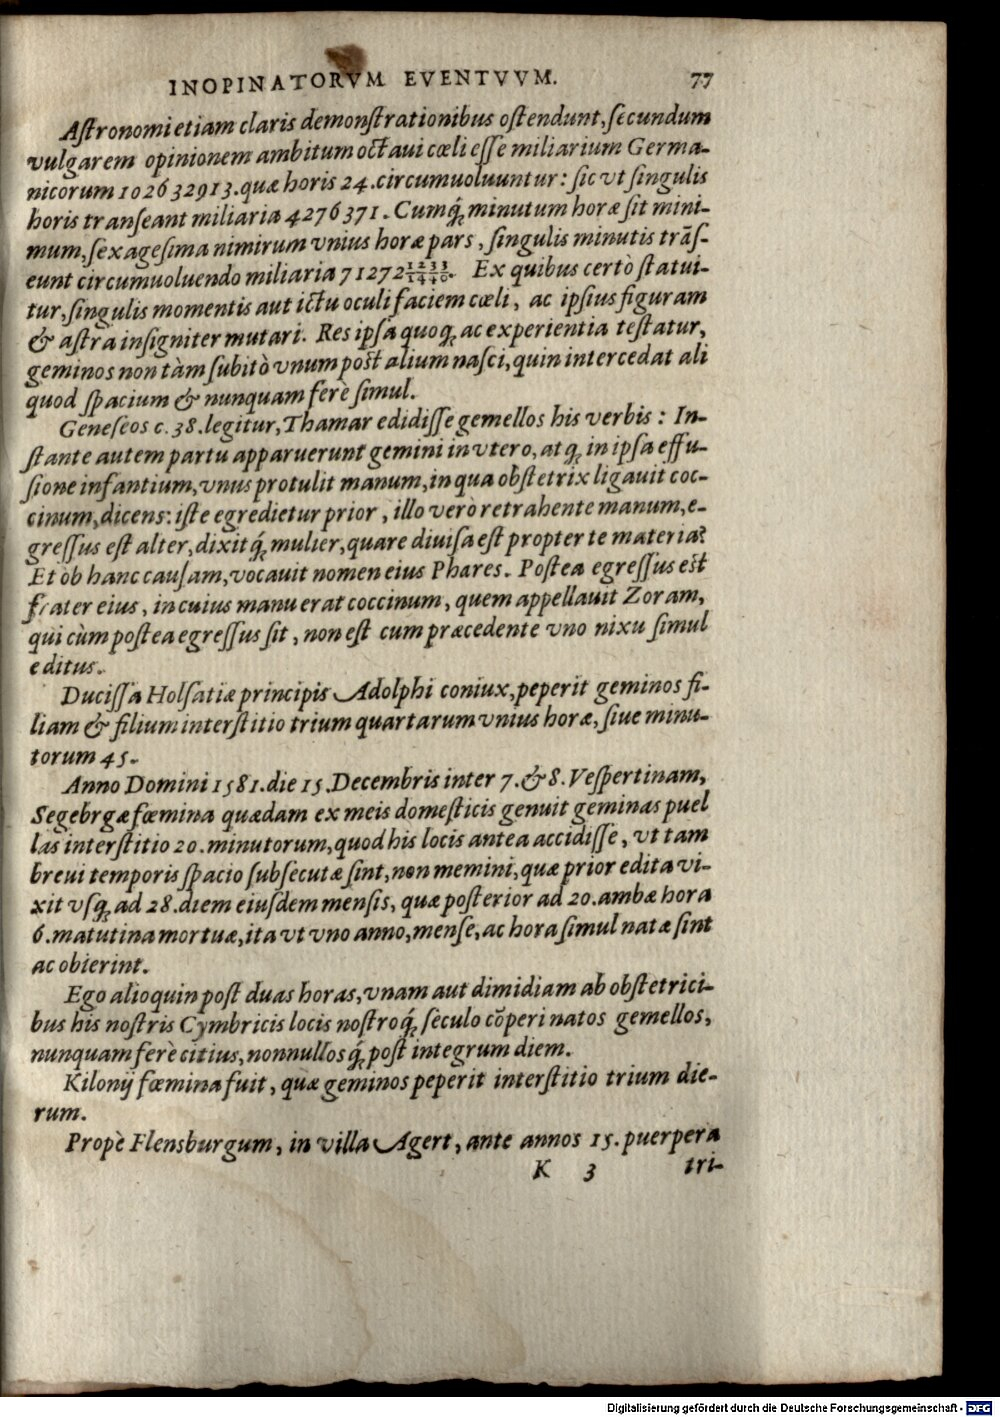 INOPINATORVM EVENTVVM. 77
Aſtronomi etiam claris demonſtrationibus oſtendunt, ſecundum
vulgarem opinionem ambitum octaui cœli eſſe miliarium Germa-
nicorum 102632913. quæ horis 24. circumuoluuntur: ſic vt ſingulis
horis tranſeant miliaria 4276371. Cumq́; minutum horæ ſit mini-
mum, ſexageſima nimirum vnius horæ pars, ſingulis minutis trãſ-
eunt circumuoluendo miliaria 71272 1233/1440. Ex quibus certò ſtatui-
tur, ſingulis momentis aut ictu oculi faciem cœli, ac ipſius figuram
& aſtra inſigniter mutari. Res ipſa quoq; ac experientia teſtatur,
geminos non tàm ſubitò vnum poſt alium naſci, quin intercedat ali
quod ſpacium & nunquam ferè ſimul.
Geneſeos c. 38. legitur, Thamar edidiſſe gemellos his verbis: In-
ſtante autem partu apparuerunt gemini in vtero, atq; in ipſa effu-
ſione infantium, vnus protulit manum, in qua obſtetrix ligauit coc-
cinum, dicens: iſte egredietur prior, illo verò retrahente manum, e-
greſſus eſt alter, dixitq́; mulier, quare diuiſa eſt propter te materia?
Et ob hanc cauſam, vocauit nomen eius Phares. Poſtea egreſſus eſt
frater eius, in cuius manu erat coccinum, quem appellauit Zoram,
qui cùm poſtea egreſſus ſit, non eſt cum præcedente vno nixu ſimul
editus.
Duciſſa Holſatiæ principis Adolphi coniux, peperit geminos fi-
liam & filium interſtitio trium quartarum vnius horæ, ſiue minu-
torum 45.
Anno Domini 1581. die 15. Decembris inter 7. & 8. Veſpertinam,
Segebrgæ fœmina quædam ex meis domeſticis genuit geminas puel
las interſtitio 20. minutorum, quod his locis antea accidiſſe, vt tam
breui temporis ſpacio ſubſecutæ ſint, non memini, quæ prior edita vi-
xit vſq; ad 28. diem eiuſdem menſis, quæ poſterior ad 20. ambæ hora
6. matutina mortuæ, ita vt vno anno, menſe, ac hora ſimul natæ ſint
ac obierint.
Ego alioquin poſt duas horas, vnam aut dimidiam ab obſtetrici-
bus his noſtris Cymbricis locis noſtroq́; ſeculo cõperi natos gemellos,
nunquam ferè citius, nonnullosq́; poſt integrum diem.
Kilonij fœmina fuit, quæ geminos peperit interſtitio trium die-
rum.
Propè Flensburgum, in villa Agert, ante annos 15. puerpera
K 3 tri-
Digitalisierung gefördert durch die Deutsche Forschungsgemeinschaft - DFG